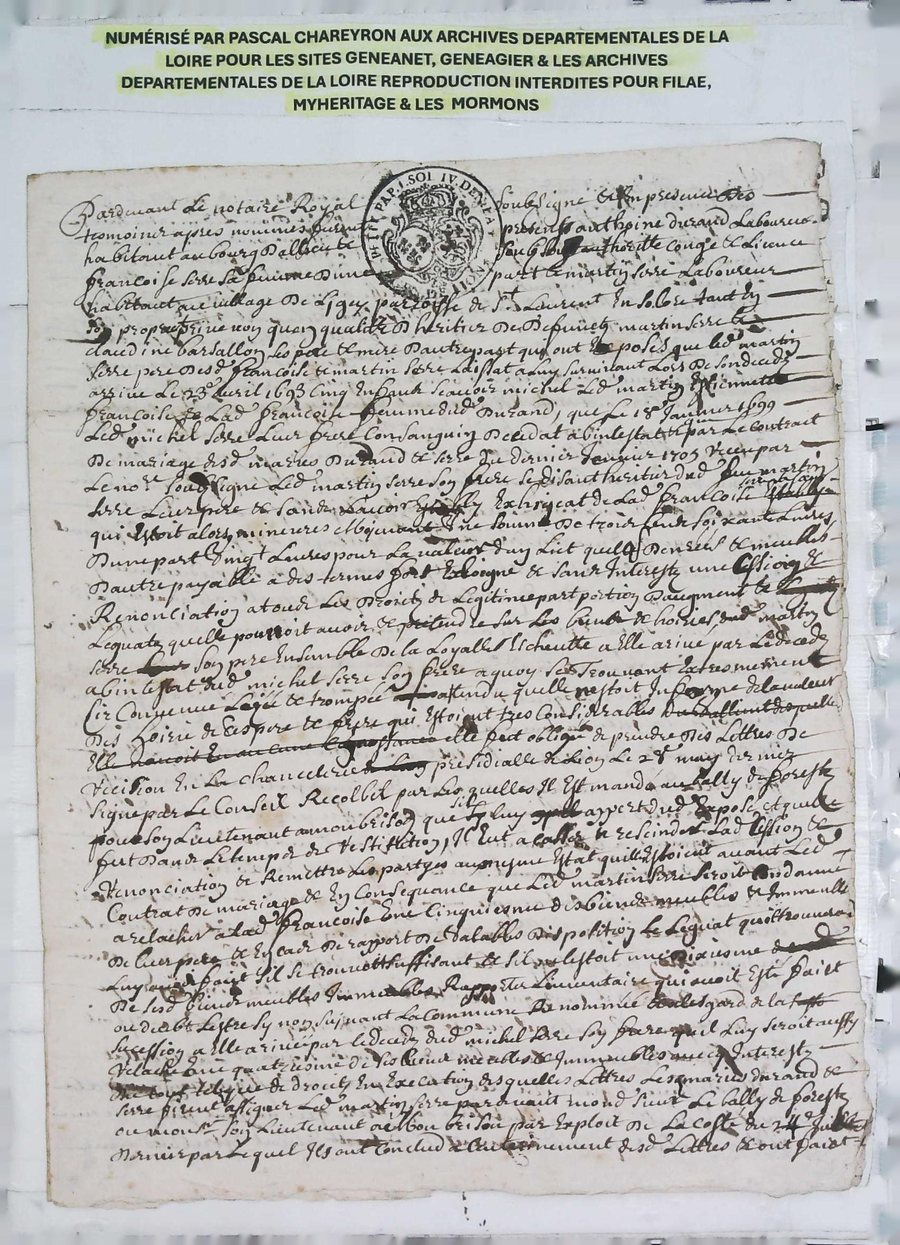 NUMÉRISÉ PAR PASCAL CHAREYRON AUX ARCHIVES DEPARTEMENTALES DE LA
LOIRE POUR LES SITES GENEANET, GENEAGIER & LES ARCHIVES
DEPARTEMENTALES DE LA LOIRE REPRODUCTION INTERDITES POUR FILAE,
MYHERITAGE & LES MORMONS
Pardevant Le notaire Royal soubsigné et En presence des
temoins apres nommés furent presents anthoine durand Laboureur
habitant au bourg soubs authorité Congé et Licence
françoise serre sa femme D'une part et martin serre Laboureur
habitant au village De paroisse de St Laurent En solore tant En
son propre qu'en qualité D'heritier De Deffunts martin serre et
claudine barsallon ses pere et mere D'autre part qui ont Exposés que led martin
serre pere desd françoise et martin serre Laissat a Luy survivant Lors de son decedz
arrivé Le 23 avril 1693 Cinq Enfants scavoir michel Led martin Estiennette
françoise et Lad françoise femme dud Durand, que Le janvier 1699
Led michel serre Leur frere Consanguin Decedat abintestat et par Le Contract
De mariage desd mariés Durand et serre du dernier janvier 1705 receu par
Le nore soubsigné Led martin serre son frere se disant heritier dud feu martin
serre Leur pere Exhigeat de Lad françoise
qui Estoit alors mineure moyenant Une somme De trois Cents soixante Livres
D'une part Vingt Livres pour La valeur d'un Lict et meubles
D'autre payable à des termes fort Esloigné et sans Interests une Cession et
Renonciation a tous Les Droits de Legitime part portion D'augment et
Legats quelle pourroit avoir et pretendre sur Les biens et hoiries dud martin
serre son pere Ensemble De la Loyalle Escheutte a Elle arivé par Le decedz
abintestat dud michel serre son frere a quoy se Trouvant
Circonvenue Lezée et trompée attendu quelle n'estoit Informe de la valeur
des hoiries de ses pere et frere qui Estoient tres Considerables
elle fut obligé de prendre des Lettres De
recision En La Chancelerie presidialle de Lion Le may dernier
signé par Le Conseil par Lesquelles Il Est mandé au bally de forests
pour son Lieutenant a monbrison que Luy apert dud Exposé et quelle
fut Dans Le temps de restitution, Il Eut a Casser et rescinder Lad Cession et
renonciation et Remettre Les partyes au mesme Estat quils Estoient avant Led
Contrat De mariage et En Consequance que Led martin serre seroit Condamné
a relacher à Lad françoise une Cinquiesme des biens meubles et Immeubles
De Leur pere et En Cas De rapport De Vallable Disposition Le Leguat quil trouvera
Luy avoir faict sil se trouve suffisant et sil ne lestoit une
De sesd biens meubles Immeubles Rapportés L'inventaire qui avoit Esté faict
ou deub Lestre sy non suivant La Commune Renommée et a Lesgard de la
sucession a Elle arivée par le decedz dud michel serre son frere quil Luy seroit aussy
relaché une quatriesme de ses biens meubles et Immeubles avec Interests
de Droits En Execution desquelles Lettres Lesd mariés durand et
serre firent assigner Led martin serre pardevant monsieur Le bally de forests
ou monsr son Lieutenant a monbrison par Exploit De La Coste du juillet
dernier par Lequel Ils ont Conclud a L'enterinement desd Lettres et ont faict